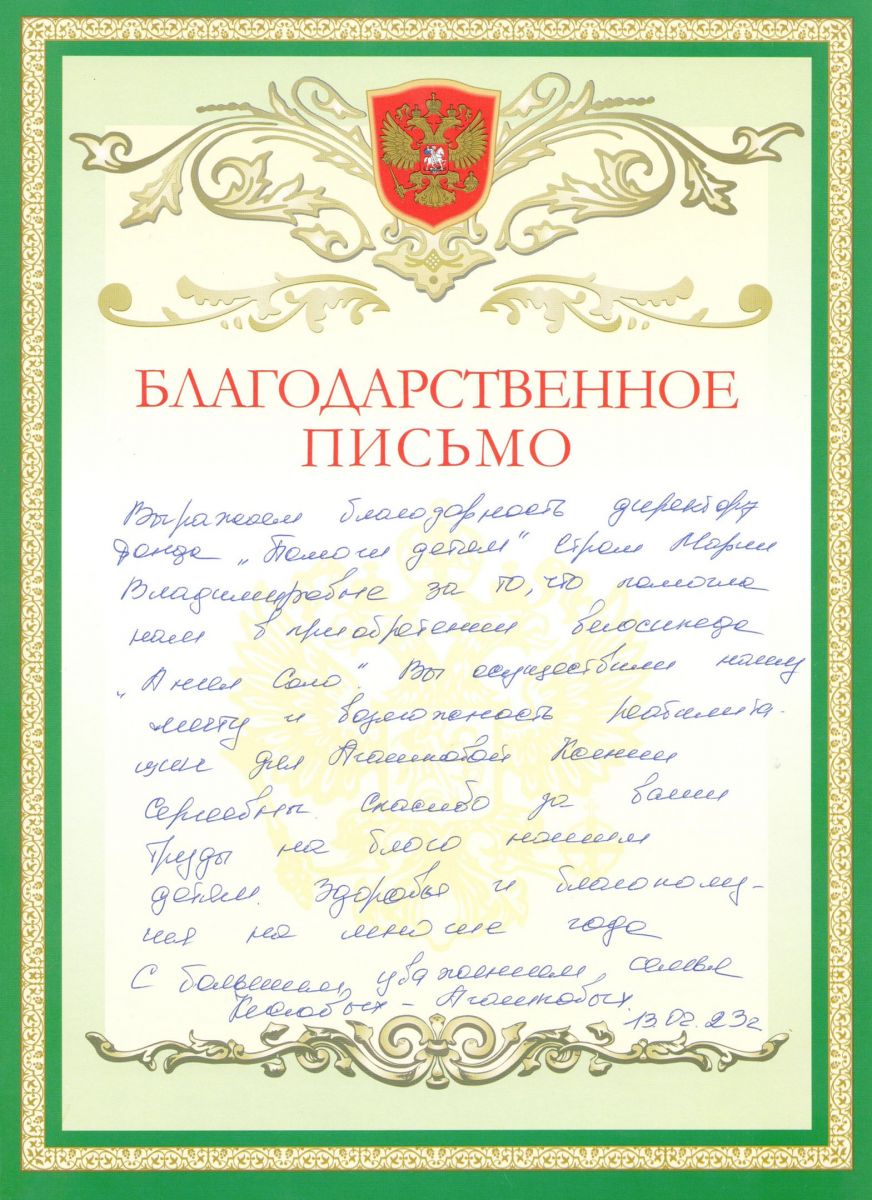 БЛАГОДАРСТВЕННОЕ
ПИСЬМО
Выражаем благодарность директору
Фонда „Помоги детям" Страм Марии
Владимировне за то, что помогла
нам в приобретении велосипеда
„Ангел Соло". Вы осуществили нашу
мечту и возможность реабилита-
ции для Агашковой Ксении
Сергеевны. Спасибо за ваши
труды на благо нашим
детям. Здоровья и благополу-
чия на многие года
С большим уважением, семья
Агашковых